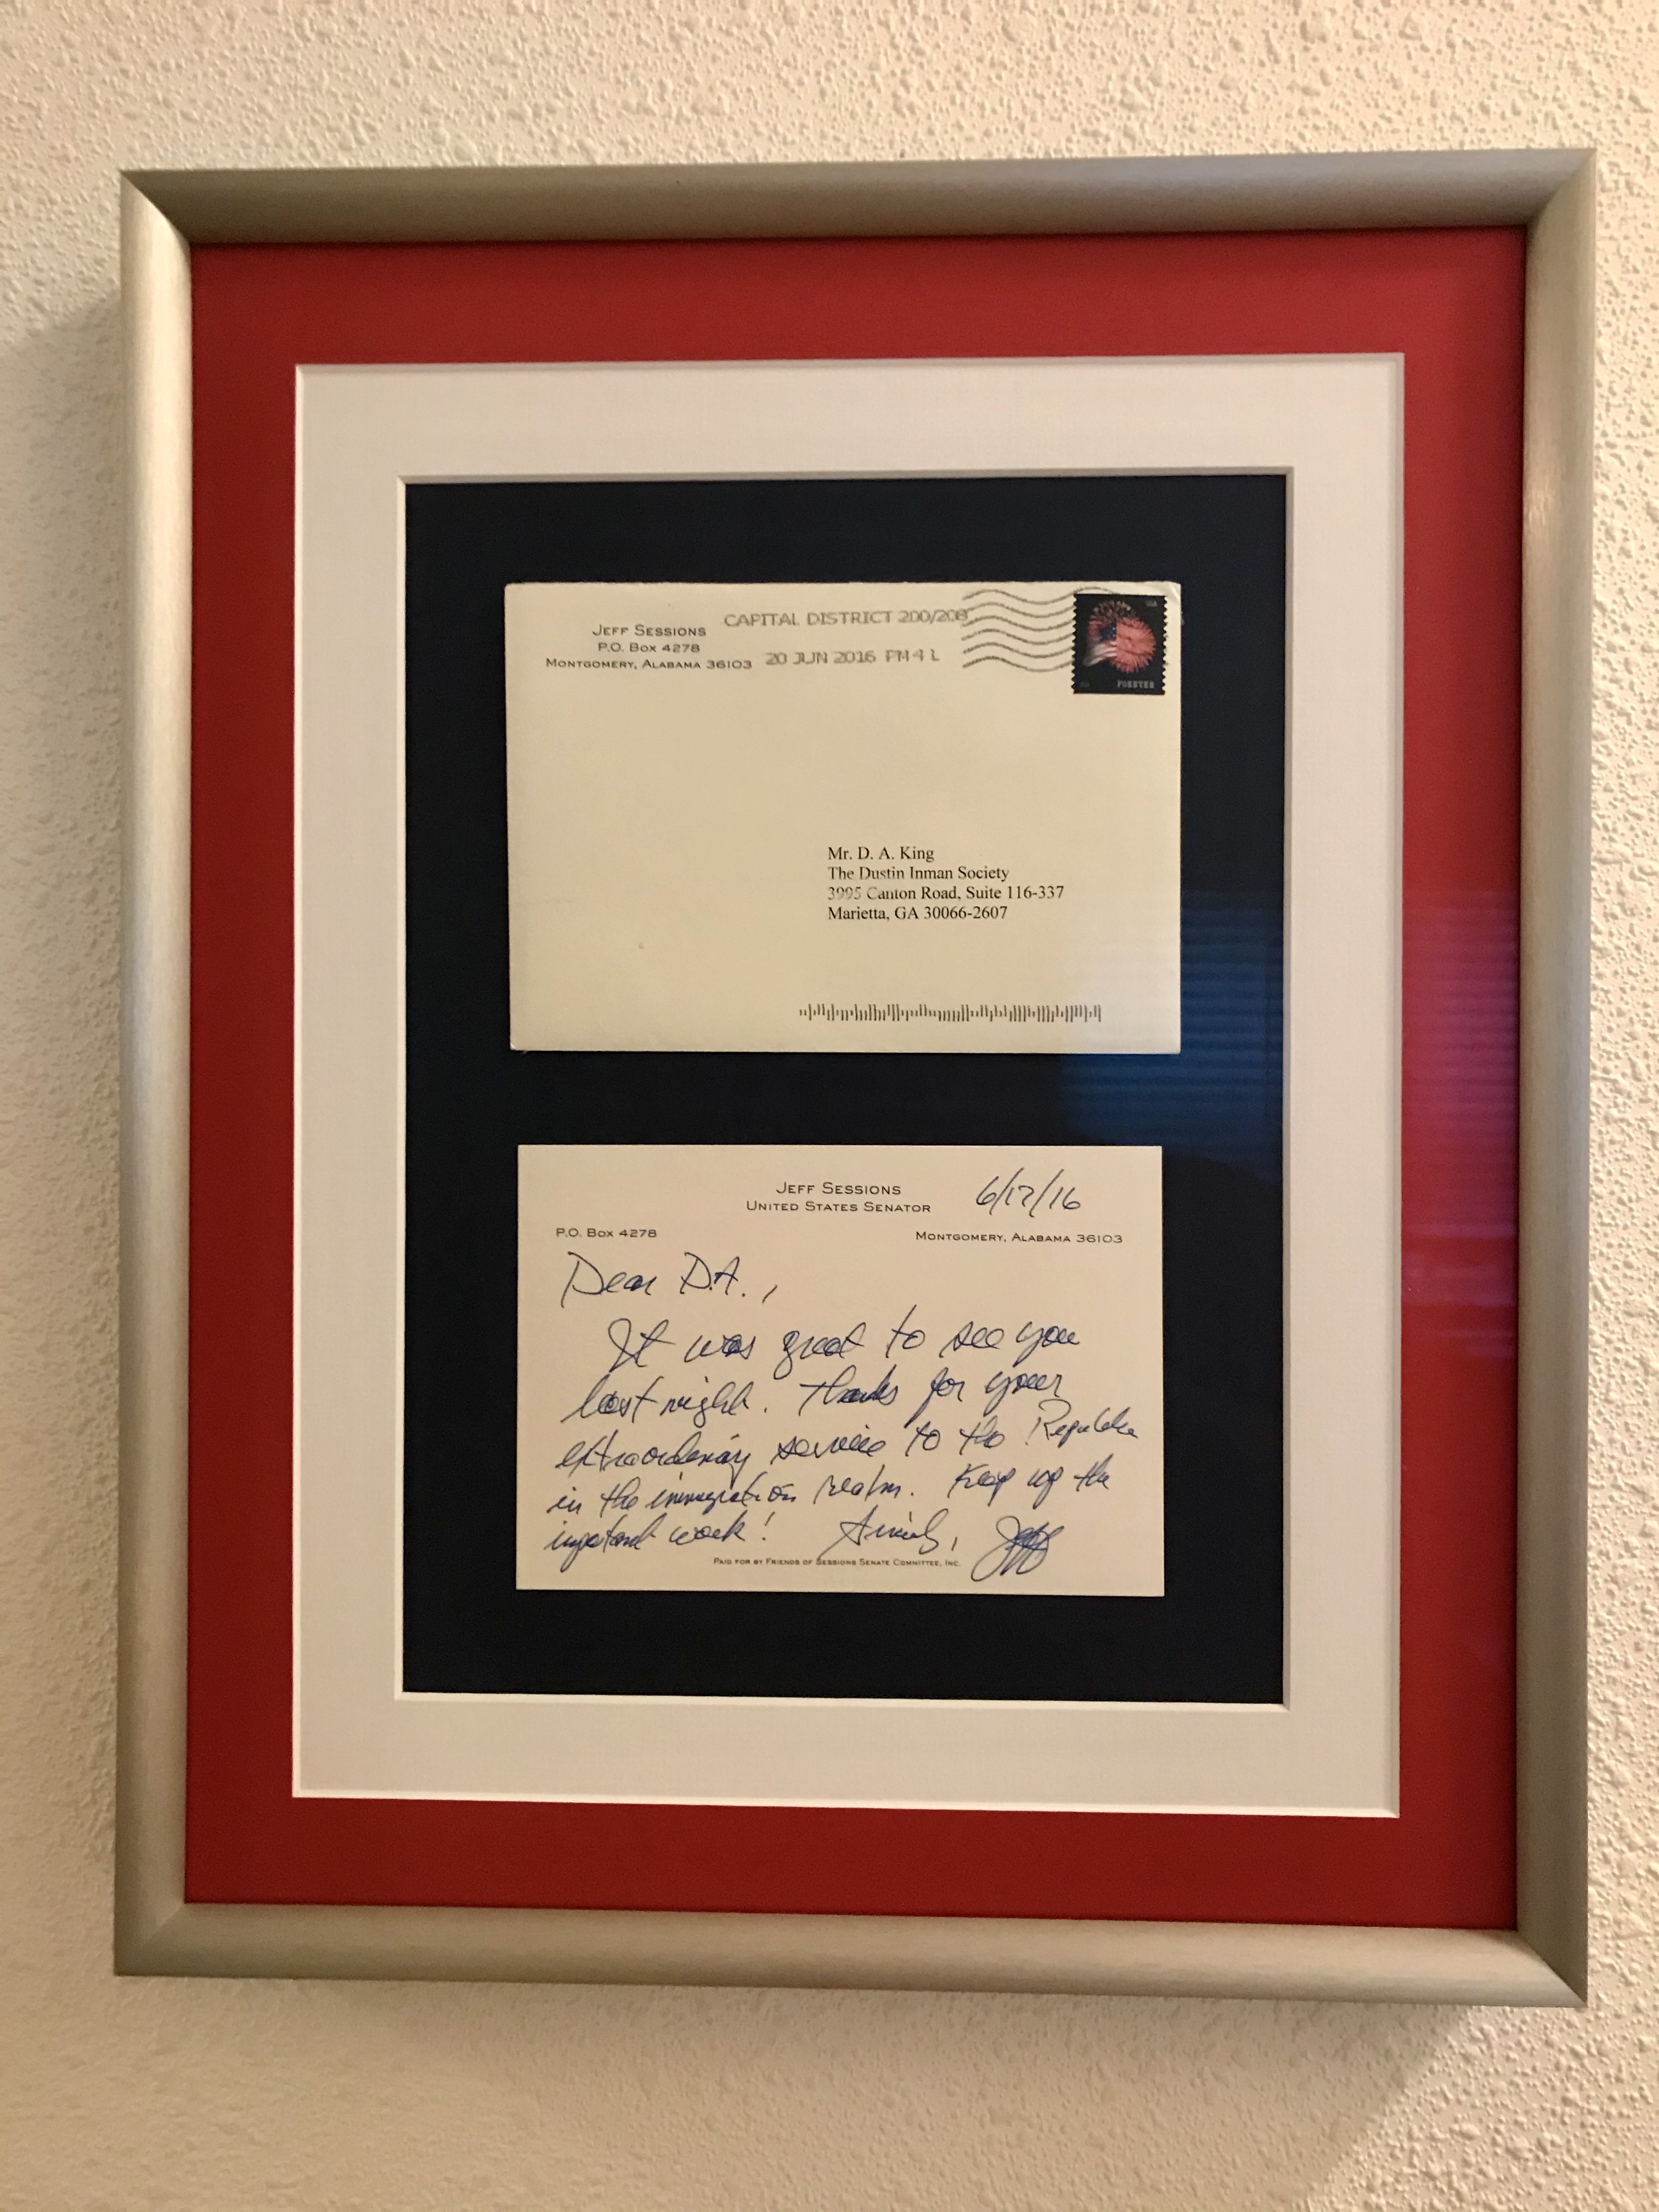 CAPITAL DISTRICT 200/208
JEFF SESSIONS
P.O. BOX 4278
MONTGOMERY, ALABAMA 36103
20 JUN 2016 PM 4 L
USA
FOREVER
Mr. D. A. King
The Dustin Inman Society
3995 Canton Road, Suite 116-337
Marietta, GA 30066-2607
JEFF SESSIONS
UNITED STATES SENATOR
6/17/16
P.O. BOX 4278
MONTGOMERY, ALABAMA 36103
Dear D.A.,
It was great to see you
last night. Thanks for your
extraordinary service to the Republic
in the immigration realm. Keep up the
important work! Sincerely, Jeff
PAID FOR BY FRIENDS OF SESSIONS SENATE COMMITTEE, INC.